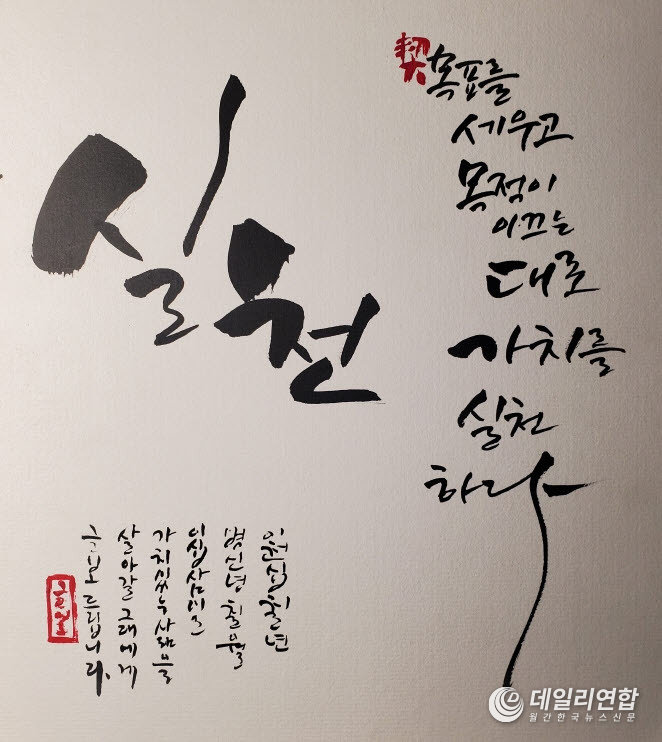 실천
목표를
세우고
목적이
이끄는
대로
가치를
실천
하라
이천십칠년
병신년 칠월
가치있는 삶을
살아갈 그대에게
드립니다.
데일리연합
월간한국뉴스신문